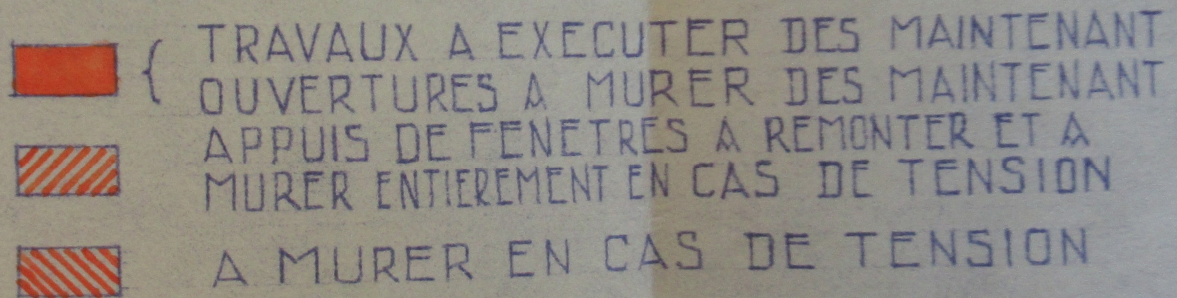 TRAVAUX A EXECUTER DES MAINTENANT
OUVERTURES A MURER DES MAINTENANT
APPUIS DE FENETRES A REMONTER ET A
MURER ENTIEREMENT EN CAS DE TENSION
A MURER EN CAS DE TENSION